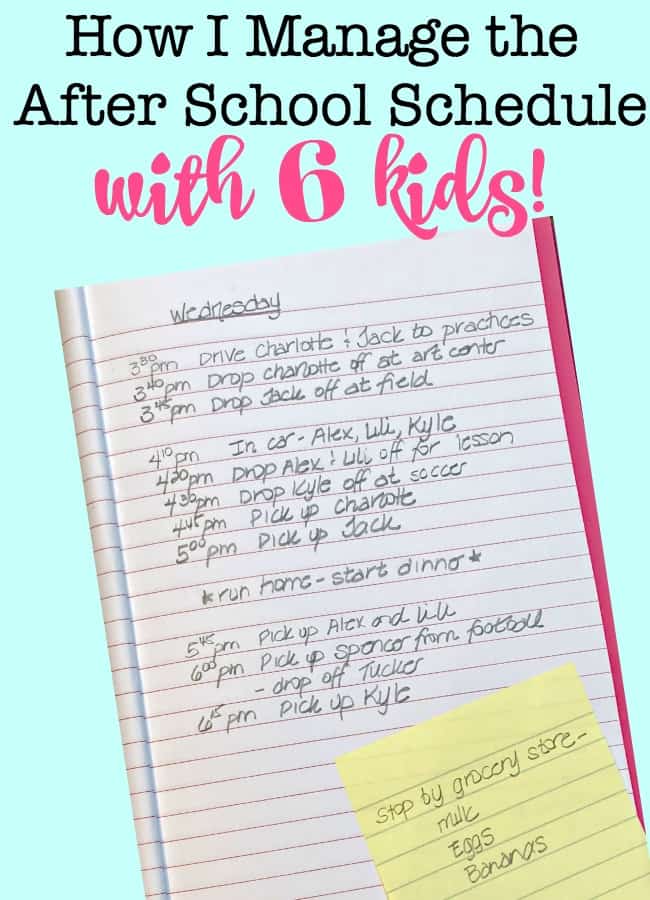 How I Manage the
After School Schedule
with 6 kids!
Wednesday
3³⁰pm Drive Charlotte & Jack to practices
3⁴⁰pm Drop Charlotte off at art center
3⁴⁵pm Drop Jack off at field
4¹⁰pm In car - Alex, Lili, Kyle
4²⁰pm Drop Alex & Lili off for lesson
4³⁰pm Drop Kyle off at soccer
4⁴⁵pm Pick up Charlotte
5⁰⁰pm Pick up Jack
*run home - start dinner*
5⁴⁵pm Pick up Alex and Lili
6⁰⁰pm Pick up Spencer from football
- drop off Tucker
6¹⁵pm Pick up Kyle
Stop by grocery store -
milk
Eggs
Bananas